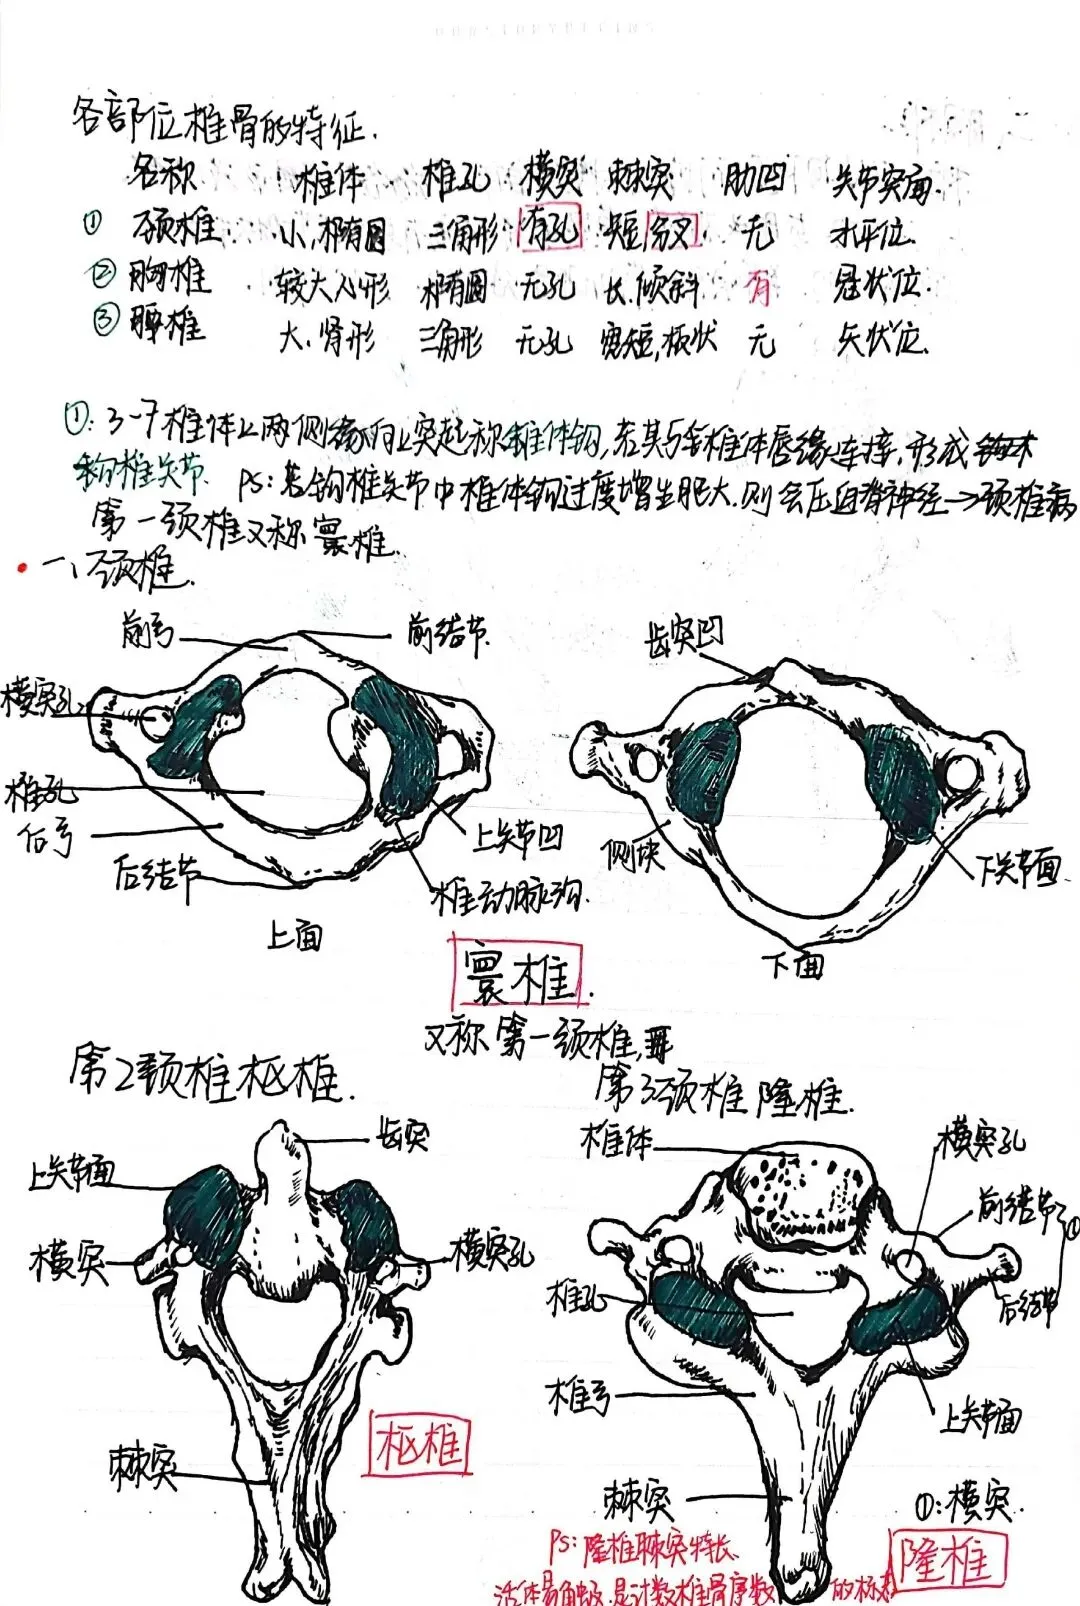 各部位椎骨的特征.
名称 椎体 椎孔 横突 棘突 肋凹 关节突面.
① 颈椎 小,椭圆 三角形 有孔 短,分叉 无 水平位.
② 胸椎 较大心形 椭圆 无孔 长.倾斜 有 冠状位.
③ 腰椎 大.肾形 三角形 无孔 宽短,板状 无 矢状位.
①: 3-7椎体上两侧缘向上突起称椎体钩,若其与椎体唇缘连接,形成
钩椎关节. PS: 若钩椎关节中椎体钩过度增生肥大.则会压迫脊神经→颈椎病
第一颈椎又称寰椎.
一、颈椎.
前弓 前结节.
齿突凹
横突孔
椎孔
后弓
后结节
上关节凹
椎动脉沟.
上面
侧块
下关节面.
下面
寰椎.
又称第一颈椎,
第2颈椎枢椎.
齿突
上关节面
横突
横突孔
棘突
枢椎
第3颈椎 隆椎.
椎体
横突孔
前结节
①
后结节
椎孔
椎弓
上关节面
棘突
①:横突.
PS: 隆椎棘突特长.
活体易触及.是计数椎骨序数 的标志
隆椎